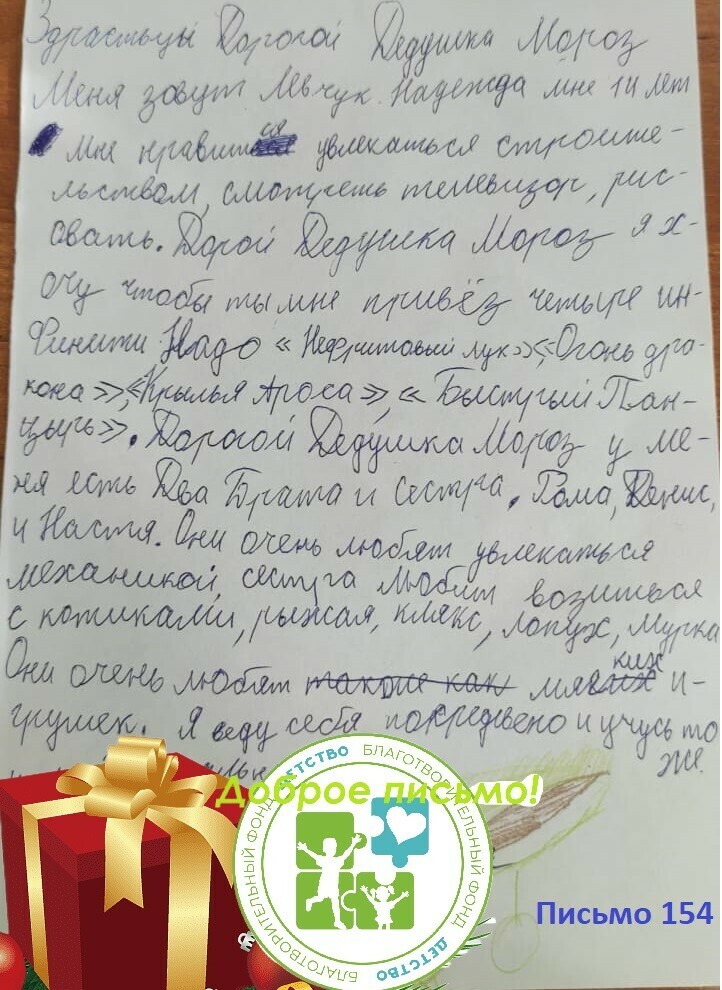 Здраствцы Дорогой Дедушка Мороз
Меня зовут Левчук Надежда мне 14 лет
Мне нравится увлекаться строите-
льством, смотреть телевизор, рис-
овать. Дорой Дедушка Мороз я х-
очу чтобы ты мне привёз четыре ин-
финити Надо «Нефритовый лук», «Огонь дра-
кона», «Крылья Ароса», «Быстрый Пан-
цырь». Дорогой Дедушка Мороз у ме-
ня есть Два Брата и Сестра. Рома, Денис,
и Настя. Они очень любят увлекаться
механикой, сестра любит возиться
с котиками, рыжая, клякс, лопух, мурка
Они очень любят такие как мягких и-
грушек. Я веду себя покредвено и учусь то
же.
Доброе письмо!
БЛАГОТВОРИТЕЛЬНЫЙ ФОНД ДЕТСТВО
БЛАГОТВОРИТЕЛЬНЫЙ ФОНД ДЕТСТВО
Письмо 154